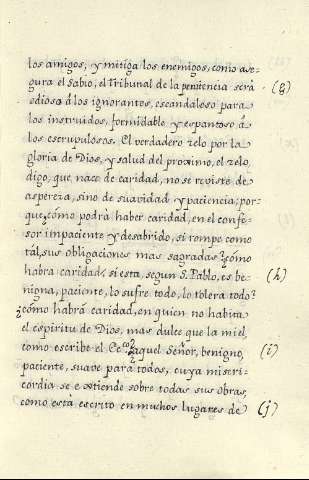 los amigos, y mitiga los enemigos, como ase-
gura el Sabio, el Tribunal de la penitencia será (g)
odioso á los ignorantes, escandaloso para
los instruidos, formidable y espantoso á
los escrupulosos. El verdadero zelo por la
gloria de Dios, y salud del proximo, el zelo,
digo, que nace de caridad, no se reviste de
aspereza, sino de suavidad y paciencia, por-
que, cómo podrá haber caridad, en el confe-
sor impaciente y desabrido, si rompe como
tál, sus obligaciones mas sagradas? ¿cómo
habra caridad, si esta, segun S. Pablo, es be- (h)
nigna, paciente, lo sufre todo, lo tolera todo?
¿cómo habrá caridad, en quien no habita
el espiritu de Dios, mas dulce que la miel,
como escribe el Ecco. aquel Señor, benigno, (i)
paciente, suave para todos, cuya miseri-
cordia se extiende sobre todas sus obras,
como está escrito en muchos lugares de (j)